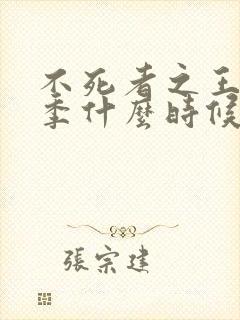 不死者之王
季什麼時候
張宗建